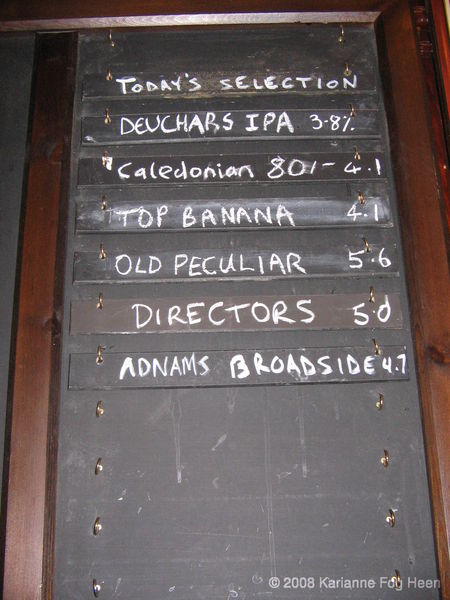 TODAY'S SELECTION
DEUCHARS IPA 3.8%
Caledonian 80/- 4.1
TOP BANANA 4.1
OLD PECULIAR 5.6
DIRECTORS 5.0
ADNAMS BROADSIDE 4.7
© 2008 Karianne Fog Heen